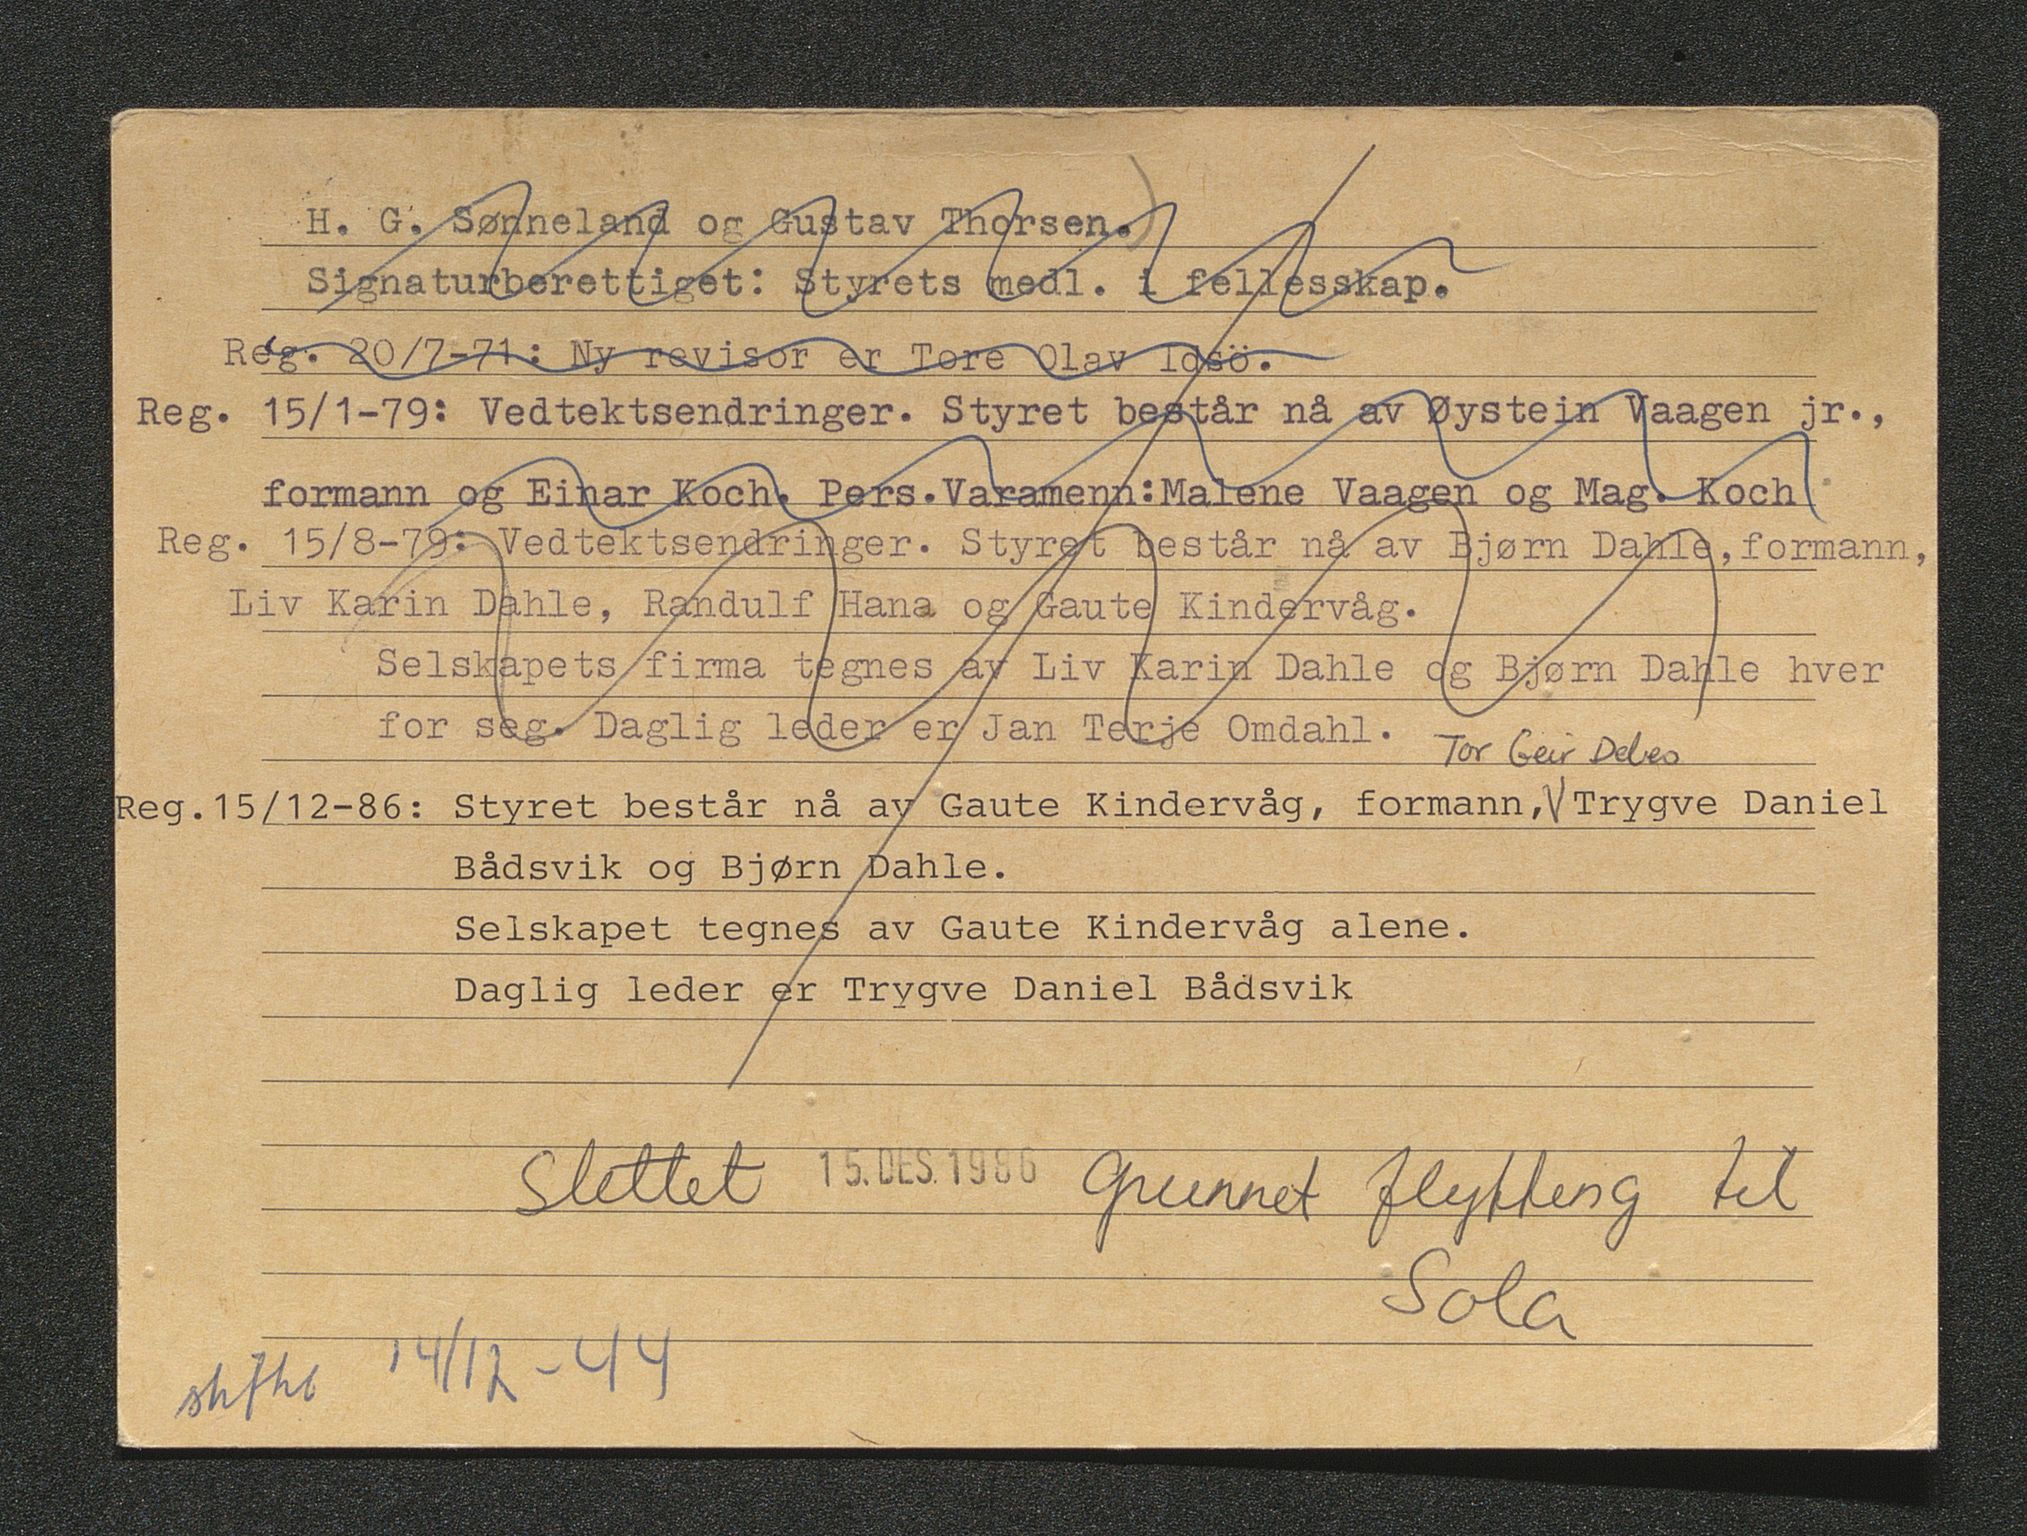 H. G. Sønneland og Gustav Thorsen.)
Signaturberettiget: Styrets medl. i fellesskap.
Reg. 20/7-71: Ny revisor er Tore Olav Idsö.
Reg. 15/1-79: Vedtektsendringer. Styret består nå av Øystein Vaagen jr.,
formann og Einar Koch. Pers.Varamenn:Malene Vaagen og Mag. Koch
Reg. 15/8-79: Vedtektsendringer. Styret består nå av Bjørn Dahle,formann,
Liv Karin Dahle, Randulf Hana og Gaute Kindervåg.
Selskapets firma tegnes av Liv Karin Dahle og Bjørn Dahle hver
for seg. Daglig leder er Jan Terje Omdahl.
Tor Geir Debes
Reg.15/12-86: Styret består nå av Gaute Kindervåg, formann, V Trygve Daniel
Bådsvik og Bjørn Dahle.
Selskapet tegnes av Gaute Kindervåg alene.
Daglig leder er Trygve Daniel Bådsvik
Slettet 15. DES. 1986 Grunnet flytting til
Sola
14/12-44